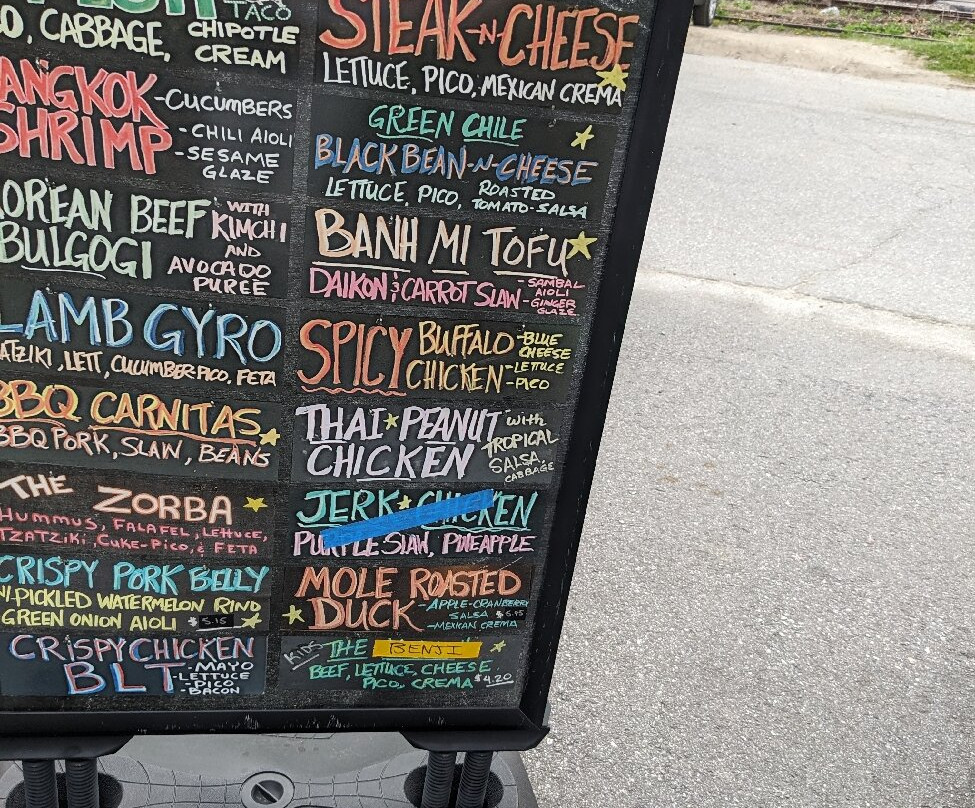 TACO
CABBAGE, CHIPOTLE
CREAM
ANGKOK
SHRIMP
-CUCUMBERS
-CHILI AIOLI
-SESAME
GLAZE
OREAN BEEF
BULGOGI
WITH
KIMCHI
AND
AVOCADO
PUREE
LAMB GYRO
ATZIKI, LETT, CUCUMBER-PICO, FETA
BBQ CARNITAS
BBQ PORK, SLAW, BEANS
THE ZORBA
HUMMUS, FALAFEL, LETTUCE,
TZATZIKI, CUKE-PICO, & FETA
CRISPY PORK BELLY
W/PICKLED WATERMELON RIND
GREEN ONION AIOLI $5.15
CRISPY CHICKEN
BLT
-MAYO
-LETTUCE
-PICO
-BACON
STEAK-N-CHEESE
LETTUCE, PICO, MEXICAN CREMA
GREEN CHILE
BLACK BEAN-N-CHEESE
LETTUCE, PICO, ROASTED
TOMATO-SALSA
BANH MI TOFU
DAIKON & CARROT SLAW
-SAMBAL
AIOLI
-GINGER
GLAZE
SPICY BUFFALO
CHICKEN
-BLUE
CHEESE
-LETTUCE
-PICO
THAI PEANUT
CHICKEN
with
TROPICAL
SALSA,
CABBAGE
JERK CHICKEN
PURPLE SLAW, PINEAPPLE
MOLE ROASTED
DUCK
-APPLE-CRANBERRY
SALSA $5.45
-MEXICAN CREMA
KIDS THE BENJI
BEEF, LETTUCE, CHEESE
PICO, CREMA $4.20